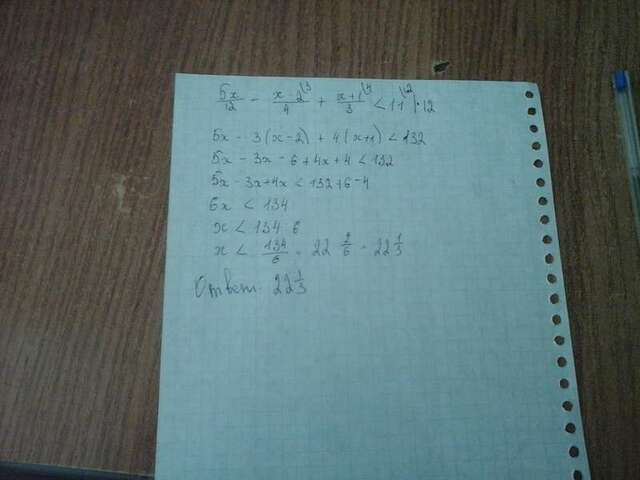 5x/12 - x-2/4 \3 + x+1/3 \4 < 11 \12 | ·12
5x - 3(x-2) + 4(x+1) < 132
5x - 3x - 6 + 4x + 4 < 132
5x 3x + 4x < 132 + 6 - 4
6x < 134
x < 134 6
x < 134/6 = 22 2/6 = 22 1/3
Ответ: 22 1/3